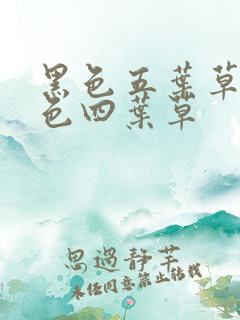 黑色五葉草
色四葉草
思過静芊
未经同意禁止转载